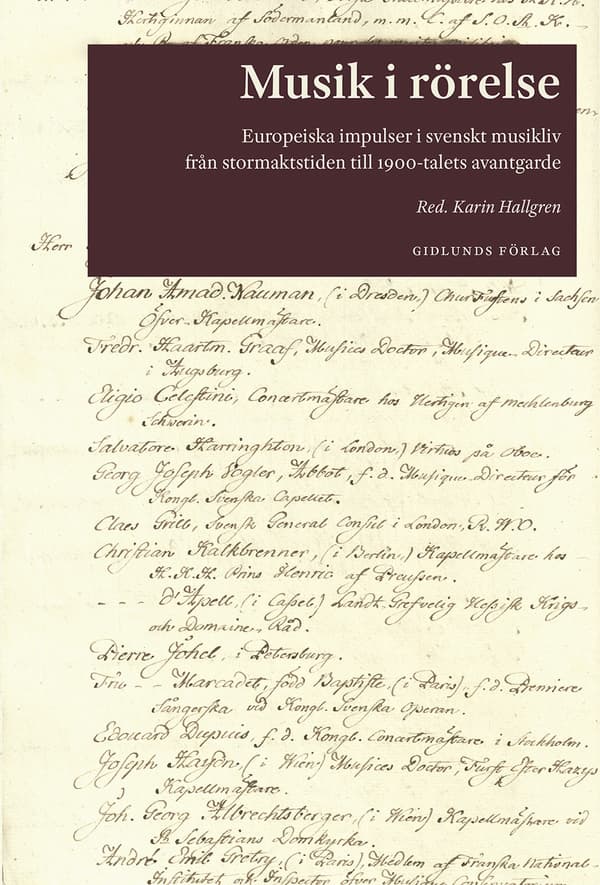 Hertiginnan af Södermanland, m. m. L. af S. O. St. K.
Musik i rörelse
Europeiska impulser i svenskt musikliv
från stormaktstiden till 1900-talets avantgarde
Red. Karin Hallgren
GIDLUNDS FÖRLAG
Herr
Johan Amad. Nauman, (i Dresden,) ChurFustens i Sachsen
Öfver-Kapellmästare.
Fredr. Haartm. Graaf, Musices Doctor, Musique-Directeur
i Augsburg.
Eligio Celestini, Concertmästare hos Hertigen af Mecklenburg
Schwerin.
Salvatore Harringhton, (i London,) Virtuos på Oboe.
Georg Joseph Vogler, Abbot, f. d. Musique-Directeur för
Kongl. Svenska Capellet.
Claes Grill, Svensk General Consul i London, R. W. O.
Christian Kalkbrenner, (i Berlin,) Kapellmästare hos
H. K. H. Prins Henric af Preussen.
- - - d'Apell, (i Cassel,) Landt-Grefvelig Hessisk Krigs-
och Domaine-Råd.
Pierre Johel, i Petersburg.
Fru - - Marcadet, född Baptiste, (i Paris), f. d. Premiere
Sångerska vid Kongl. Svenska Operan.
Edouard Dupuis, f. d. Kongl. Concertmästare i Stockholm.
Joseph Haydn, (i Wien) Musices Doctor, Furst Ester Hazys
Kapellmästare.
Joh. Georg Albrechtsberger, (i Wien) Kapellmästare vid
St. Sebastians Domkyrka.
André Emil Gretry, (i Paris), Medlem af Franska National-
Institutet och Inspector öfver Musique